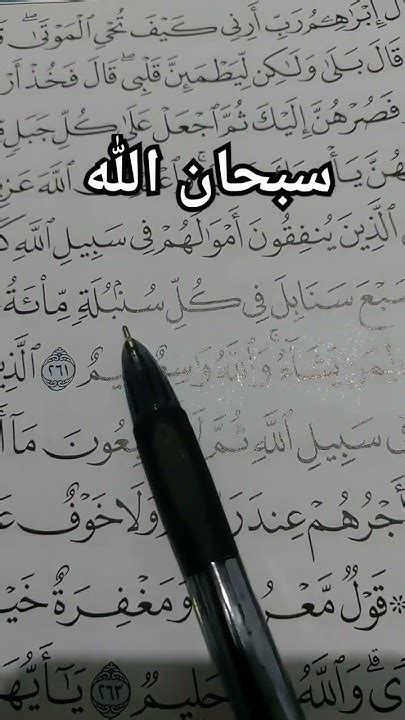 إِبْرَٰهِـۧمُ رَبِّ أَرِنِى كَيْفَ تُحْىِ ٱلْمَوْتَىٰ ۖ
قَالَ بَلَىٰ وَلَـٰكِن لِّيَطْمَئِنَّ قَلْبِى ۖ قَالَ فَخُذْ
فَصُرْهُنَّ إِلَيْكَ ثُمَّ ٱجْعَلْ عَلَىٰ كُلِّ جَبَلٍ
سبحان الله
ٱللَّهَ
ٱلَّذِينَ يُنفِقُونَ أَمْوَٰلَهُمْ فِى سَبِيلِ ٱللَّهِ
سَبْعَ سَنَابِلَ فِى كُلِّ سُنۢبُلَةٍ مِّا۟ئَةُ
يَشَآءُ ۗ وَٱللَّهُ ٢٦١
سَبِيلِ ٱللَّهِ ثُمَّ مَآ
أَجْرُهُمْ عِندَ وَلَا خَوْفٌ
قَوْلٌ وَمَغْفِرَةٌ
وَٱللَّهُ حَلِيمٌ ٢٦٣